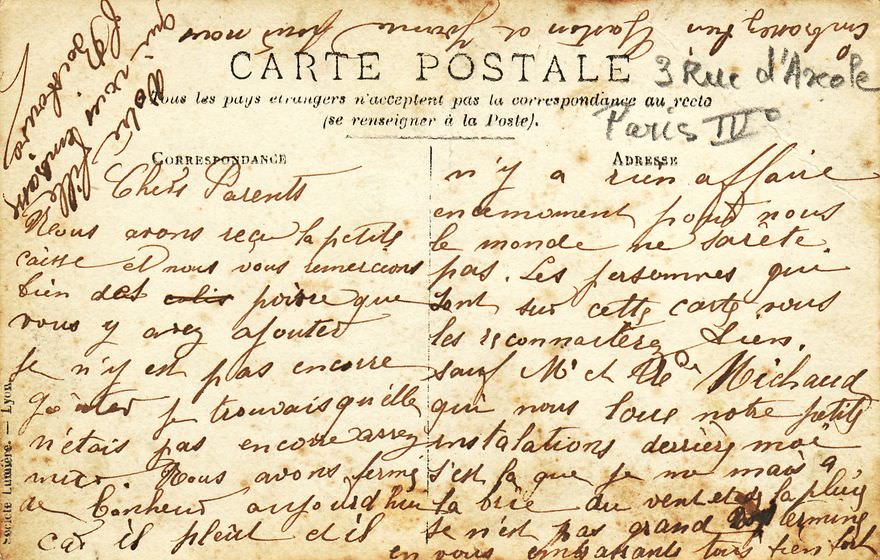 CARTE POSTALE
3 Rue d'Arcole
Paris IVe
Tous les pays étrangers n'acceptent pas la correspondance au recto
(se renseigner à la Poste).
CORRESPONDANCE
ADRESSE
Chers Parents
Nous avons reçu la petite
caisse et nous vous remercions
bien des colis poivre que
vous y avez ajouter
je n'y est pas encore
goûter je trouvais qu'elle
n'étais pas encore assez
mure. Nous avons fermé
de bonheur aujourd'hui
car il pleut et il
n'y a rien affaire
en cemoment pour nous
le monde ne sarête
pas. Les personnes qui
sont sur cette carte vous
les reconnaitrez bien.
sauf Mr et Michaud
qui nous loue notre petite
instalations derrière moi
s'est la que je me mais à
la brie du vent et de la pluie
se n'est pas grand termine
en vous embrassants tous bien fort
Votre fille
qui vous embrasse
embrassez bien Gaston et Jeanne pour nous
Société Lumière. — Lyon.